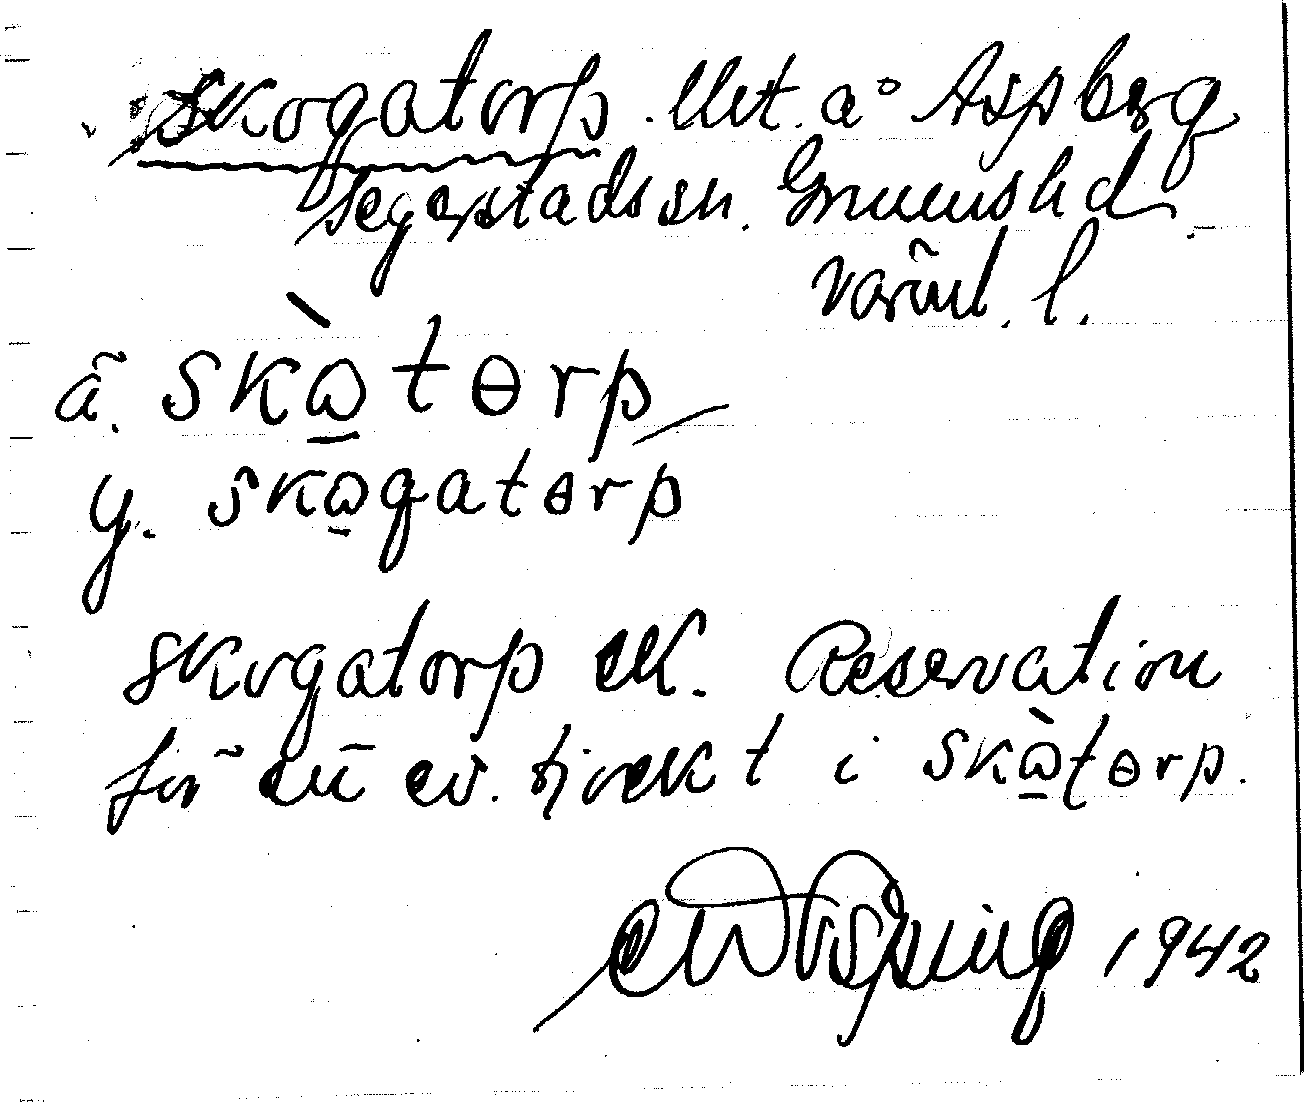 Skogatorp. Utt. a° Aspberg
Segerstads sn. Grums hd.
Värml. l.
ä. skὼ̲tɵrp
y. skω̲gatɵrp
Skogatorp ek. Reservation
för en ev. tjockt t i skὼ̲tɵrp.
1942